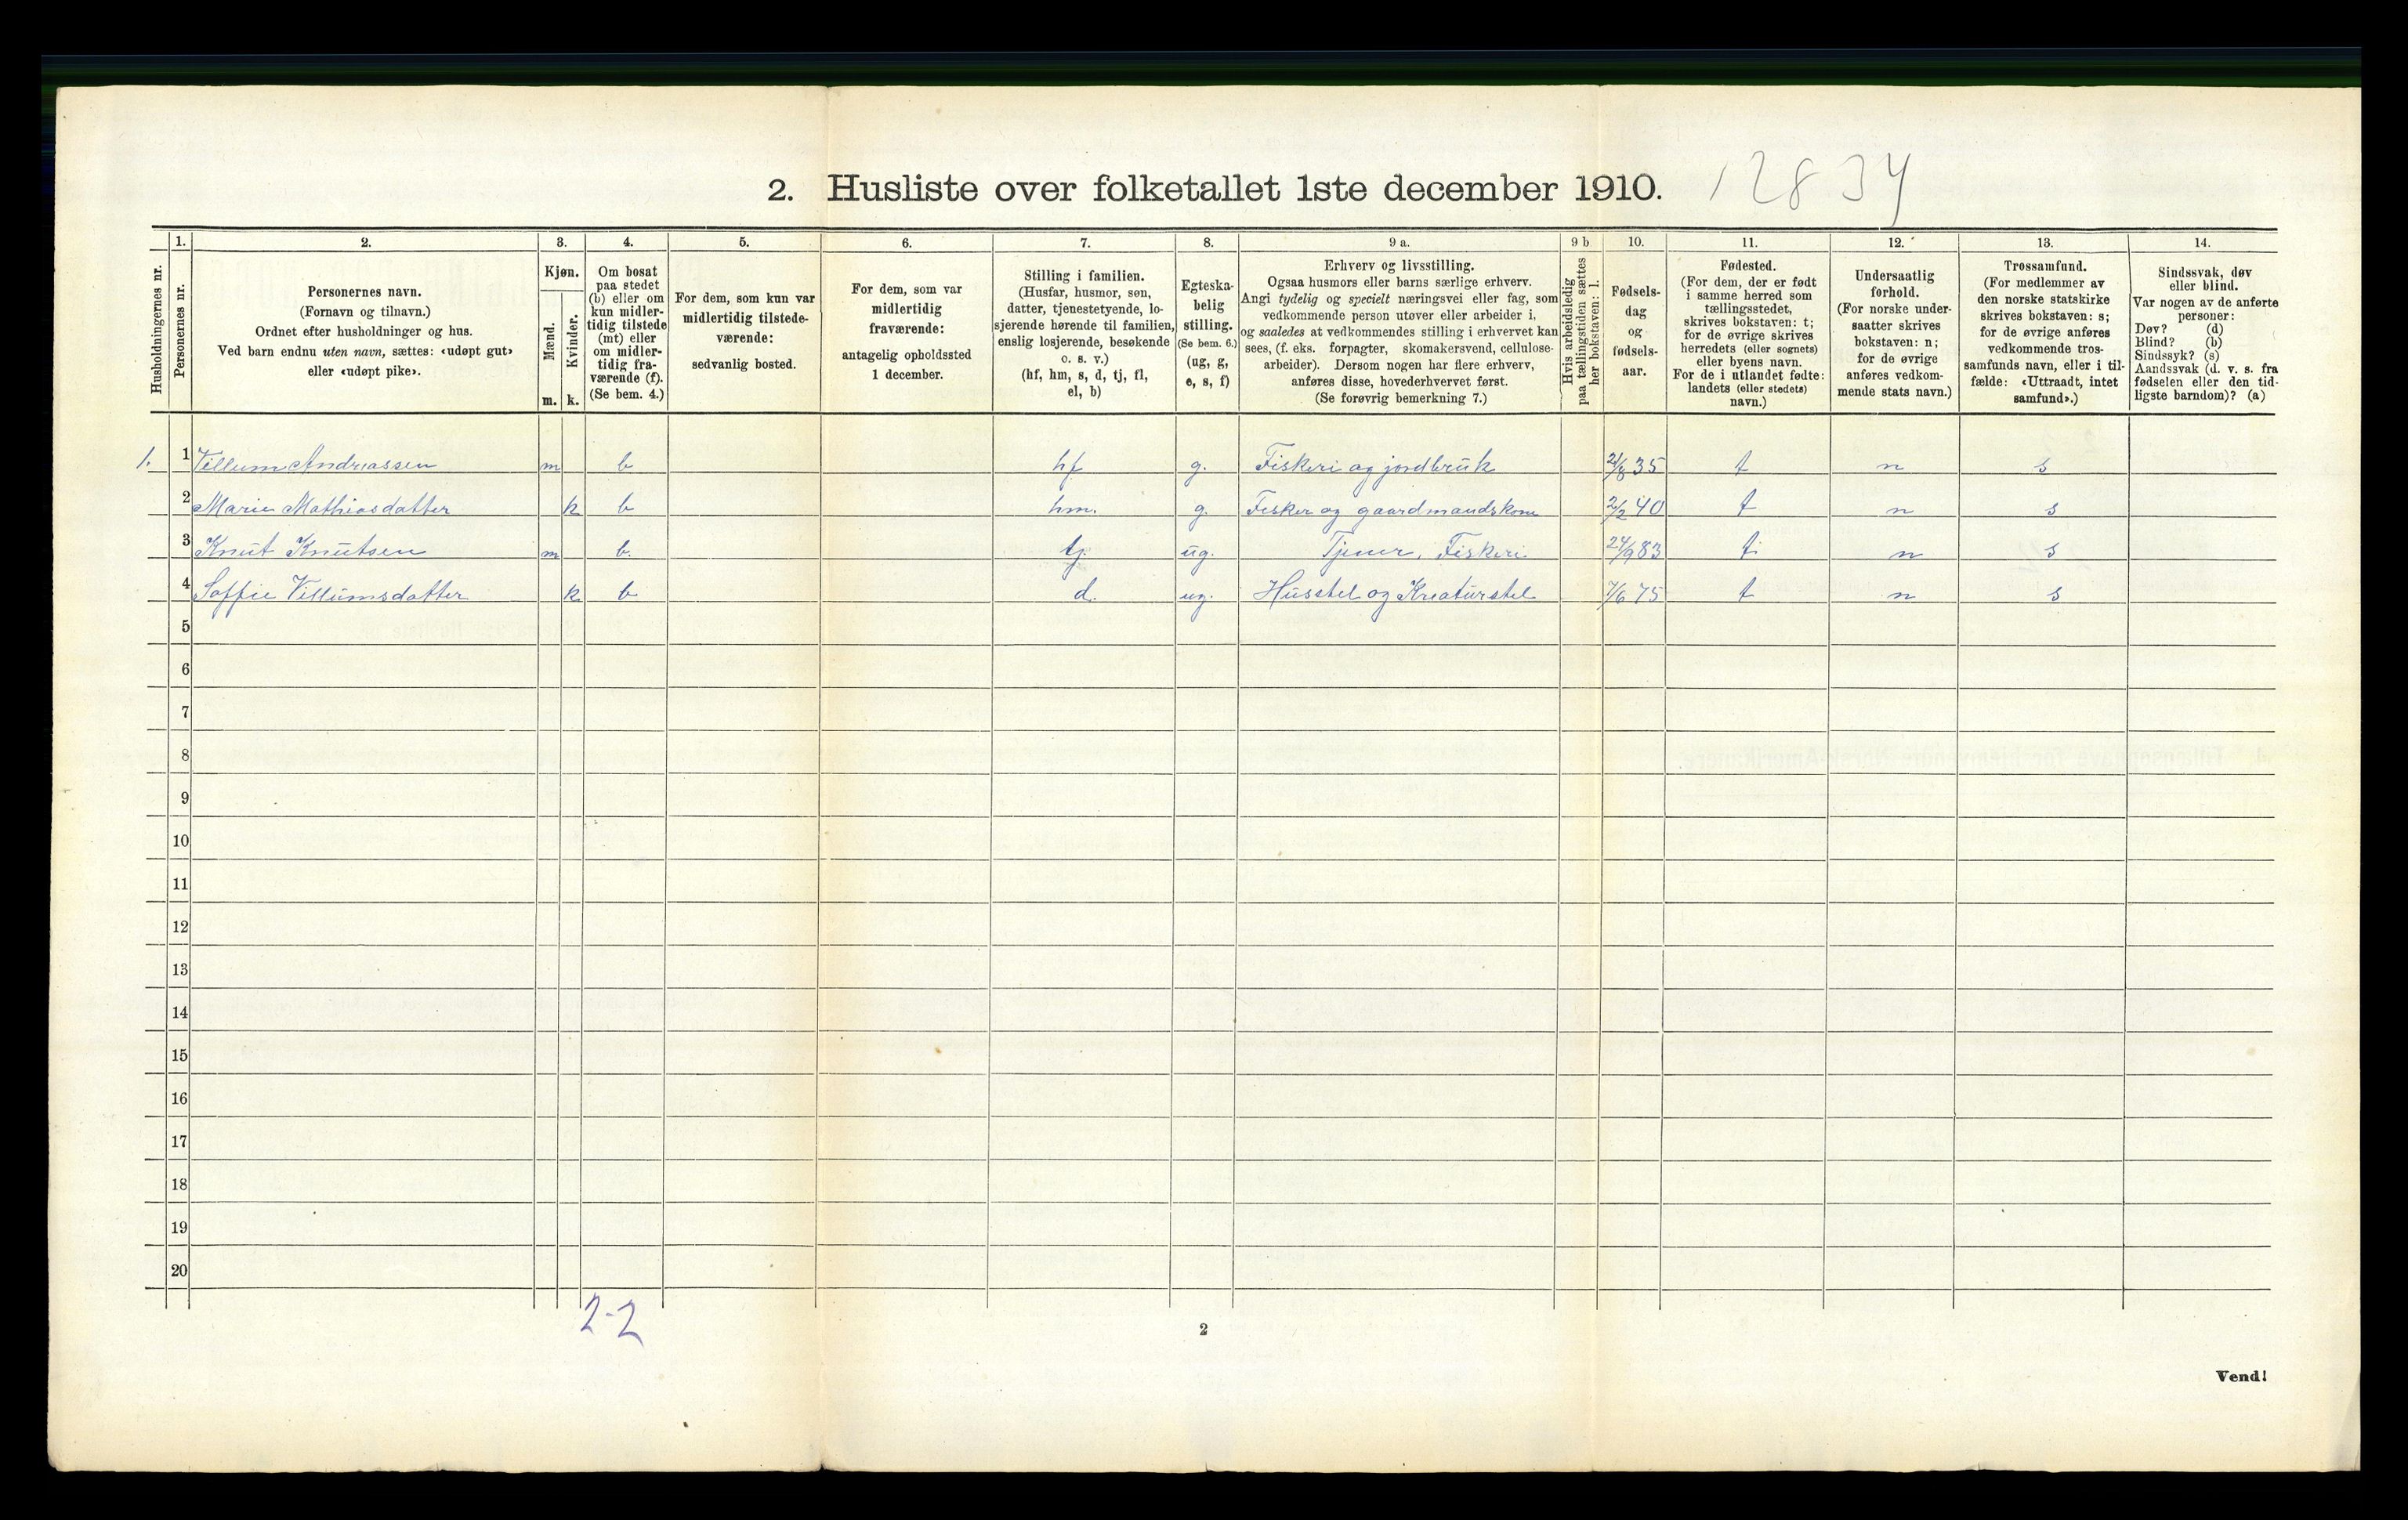 2. Husliste over folketallet 1ste december 1910. 12834
Husholdningernes nr.
1.
Personernes nr.
2.
Personernes navn.
(Fornavn og tilnavn.)
Ordnet efter husholdninger og hus.
Ved barn endnu uten navn, sættes: «udøpt gut»
eller «udøpt pike».
3.
Kjøn.
Mænd.
Kvinder.
m. k.
4.
Om bosat
paa stedet
(b) eller om
kun midler-
tidig tilstede
(mt) eller
om midler-
tidig fra-
værende (f).
(Se bem. 4.)
5.
For dem, som kun var
midlertidig tilstede-
værende:
sedvanlig bosted.
6.
For dem, som var
midlertidig
fraværende:
antagelig opholdssted
1 december.
7.
Stilling i familien.
(Husfar, husmor, søn,
datter, tjenestetyende, lo-
sjerende hørende til familien,
enslig losjerende, besøkende
o. s. v.)
(hf, hm, s, d, tj, fl,
el, b)
8.
Egteska-
belig
stilling.
(Se bem. 6.)
(ug, g,
e, s, f)
9 a.
Erhverv og livsstilling.
Ogsaa husmors eller barns særlige erhverv.
Angi tydelig og specielt næringsvei eller fag, som
vedkommende person utøver eller arbeider i,
og saaledes at vedkommendes stilling i erhvervet kan
sees, (f. eks. forpagter, skomakersvend, cellulose-
arbeider). Dersom nogen har flere erhverv,
anføres disse, hovederhvervet først.
(Se forøvrig bemerkning 7.)
9 b
Hvis arbeidsledig
paa tællingstiden sættes
her bokstaven: l.
10.
Fødsels-
dag
og
fødsels-
aar.
11.
Fødested.
(For dem, der er født
i samme herred som
tællingsstedet,
skrives bokstaven: t;
for de øvrige skrives
herredets (eller sognets)
eller byens navn.
For de i utlandet fødte:
landets (eller stedets)
navn.)
12.
Undersaatlig
forhold.
(For norske under-
saatter skrives
bokstaven: n;
for de øvrige
anføres vedkom-
mende stats navn.)
13.
Trossamfund.
(For medlemmer av
den norske statskirke
skrives bokstaven: s;
for de øvrige anføres
vedkommende tros-
samfunds navn, eller i til-
fælde: «Uttraadt, intet
samfund».)
14.
Sindssvak, døv
eller blind.
Var nogen av de anførte
personer:
Døv? (d)
Blind? (b)
Sindssyk? (s)
Aandssvak (d. v. s. fra
fødselen eller den tid-
ligste barndom)? (a)
1. 1 Villum Andreassen m b hf g. Fiskeri og jordbruk 21/8 35 t n s
2 Marie Mathiasdatter k b hm. g. Fisker og gaardmandskone 2/2 40 t n s
3 Knut Knutsen m b. tj. ug. Tjener, Fiskeri 24/9 83 t n s
4 Soffie Villumsdatter k b d. ug. Husstel og Kreaturstel 7/6 75 t n s
5
6
7
8
9
10
11
12
13
14
15
16
17
18
19
20
2-2
2
Vend!